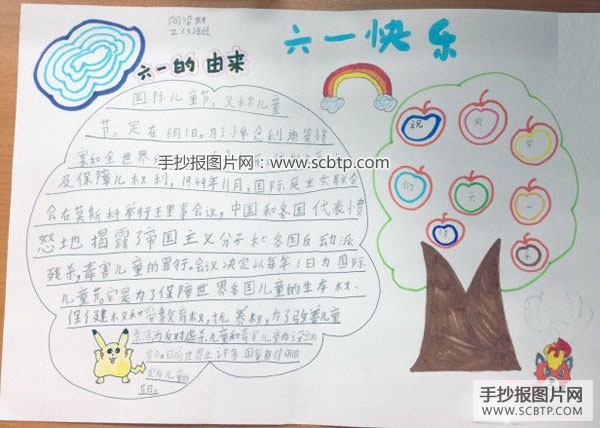 2(3)班
六一快乐
六一的由来
国际儿童节，又称儿童
节。定在6月1日。为了悼念利迪策惨
案和全世界
手抄报图片网：www.scbtp.com
及保障儿权利，1949年11月，国际民主妇联合
会在莫斯科举行王里事会议，中国和各国代表愤
怒地揭露了帝国主义分子和各国反动派
残杀，毒害儿童的罪行。会议决定以每年1日为国际
儿童节。它是为了保障世界各国儿童的生存权、
保健权和受教育权，抚养权，为了改善儿童
生活为反对虐杀儿童和毒害儿童而
节日。目前世界上
定为儿童的
节日。
祝 同 学
们 六 一
节 乐
手抄报图片网
WWW.SCBTP.COM